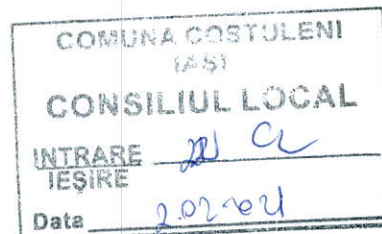 COMUNA COSTULENI
IAȘI
CONSILIUL LOCAL
INTRARE
IEȘIRE
Data